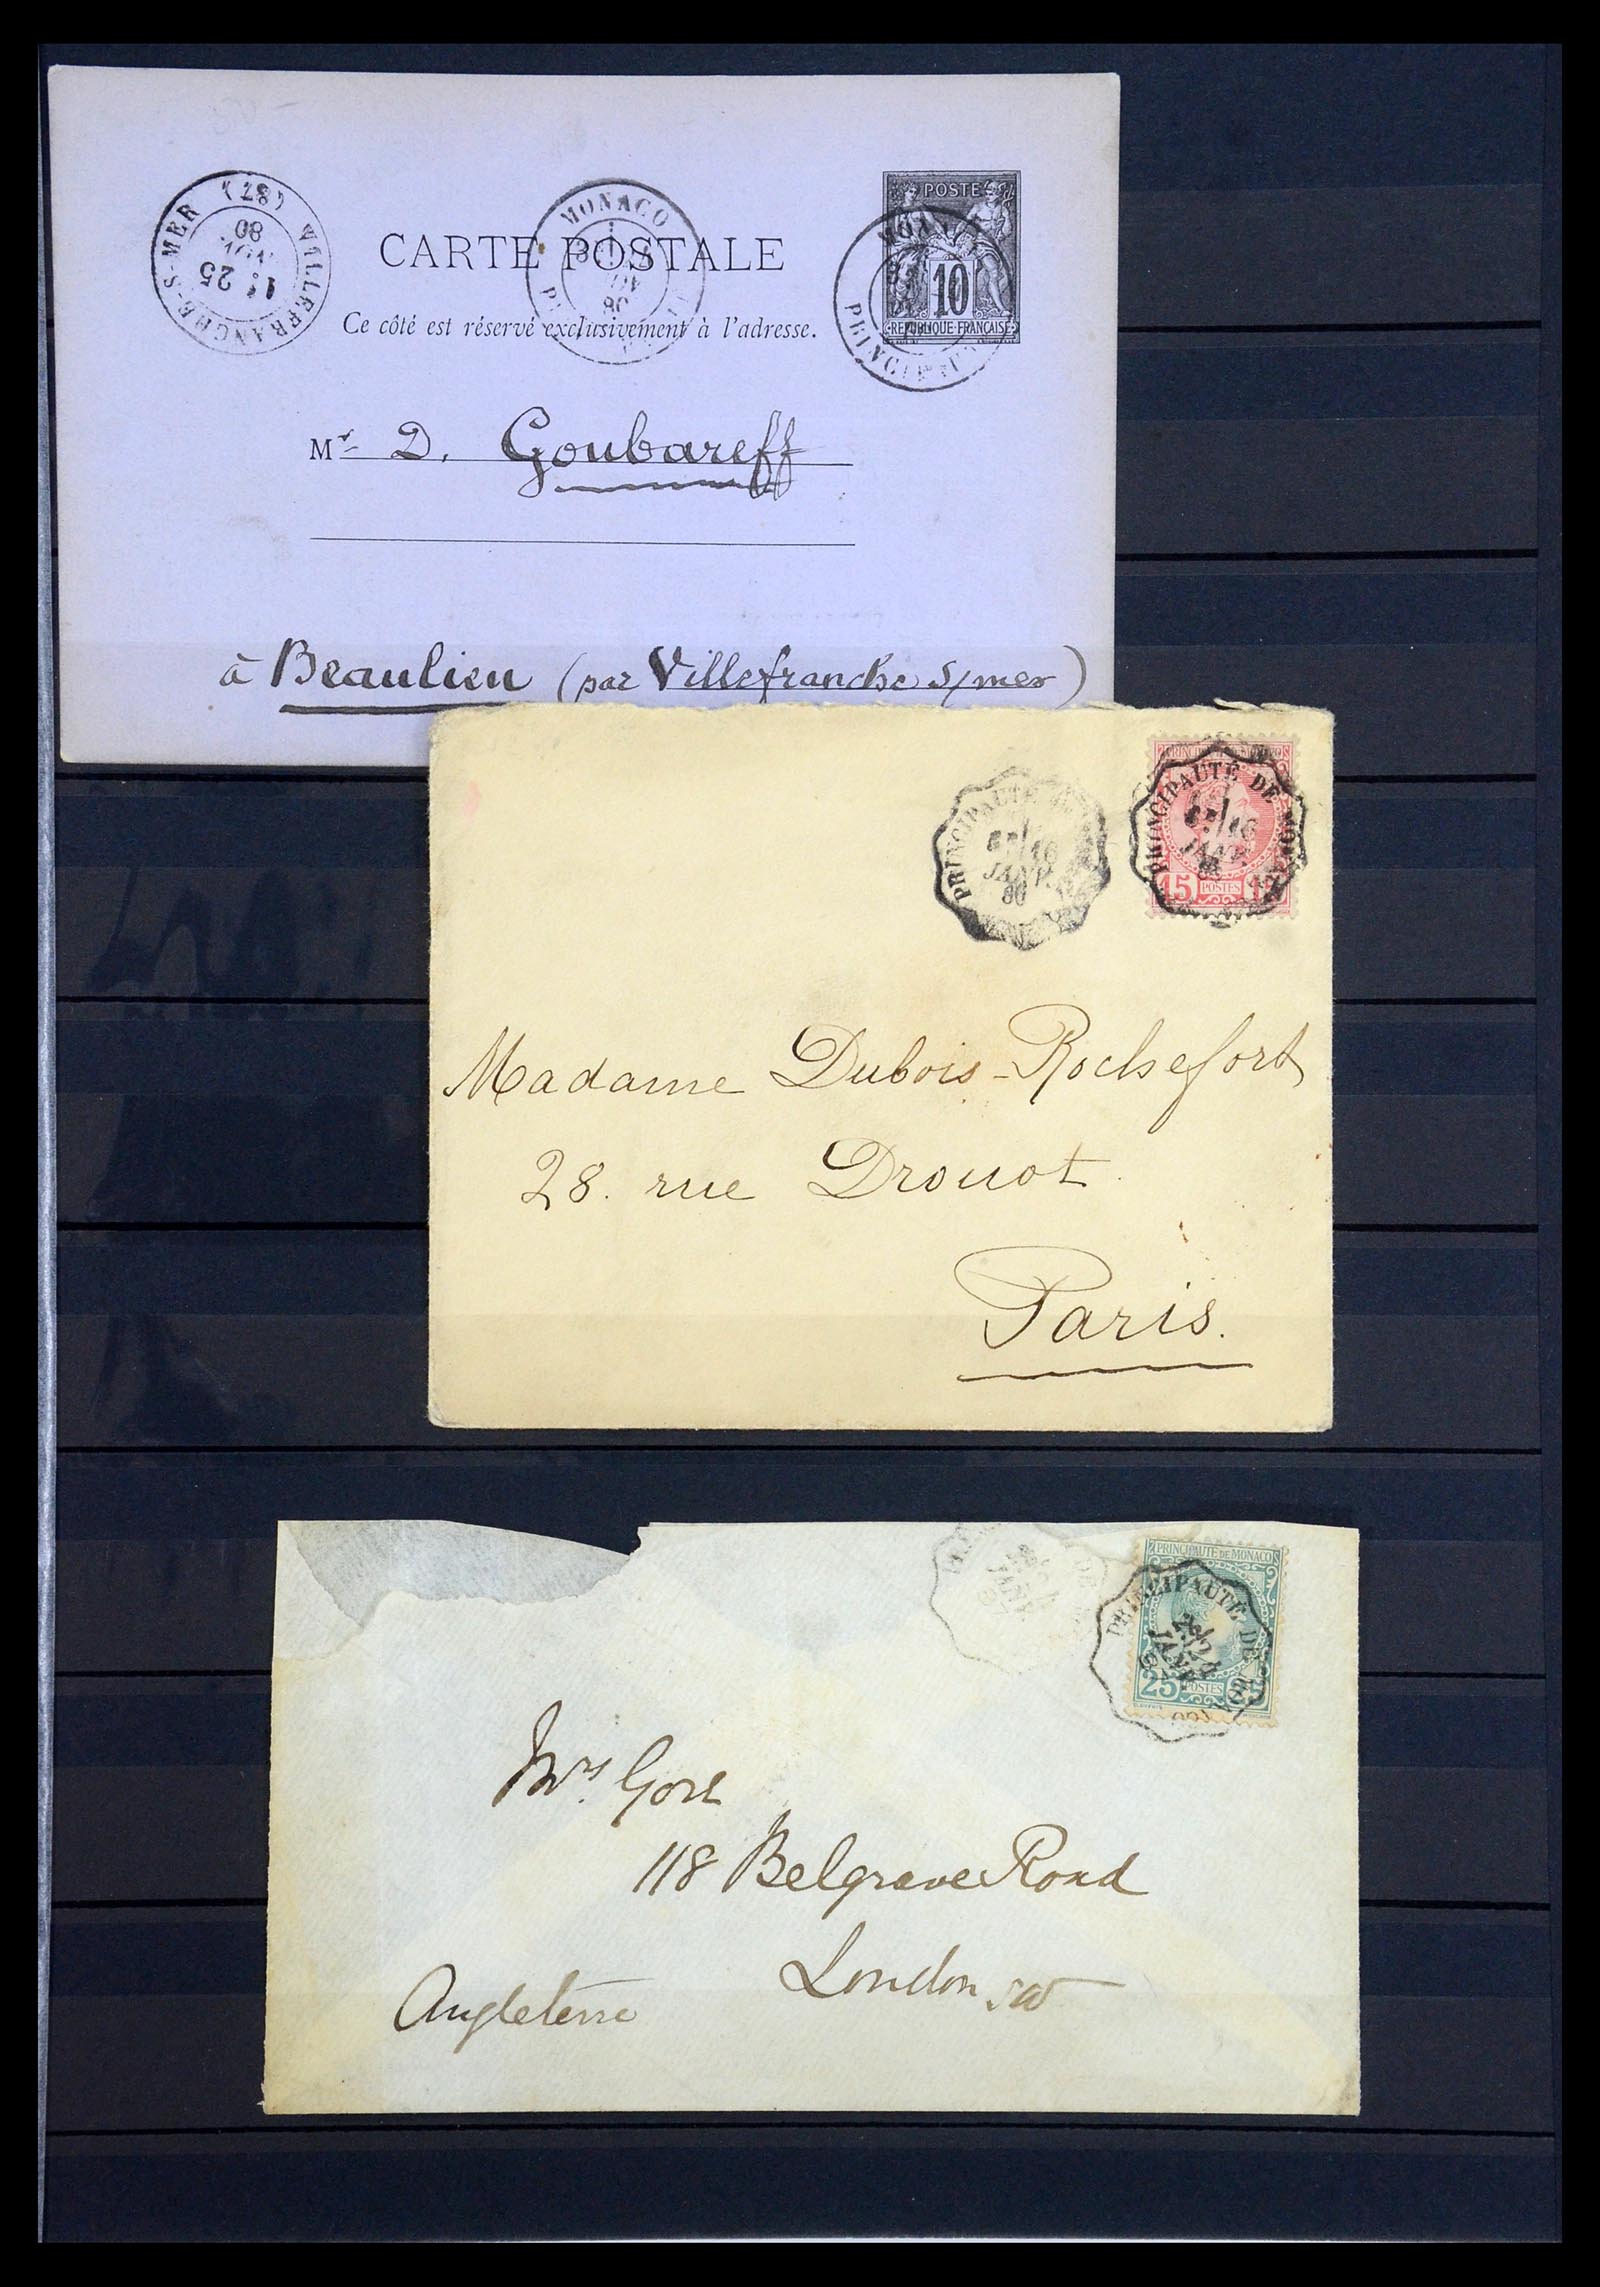 VILLEFRANCHE-S-MER (87)
25
NOV
80
MONACO
80
CARTE POSTALE
Ce côté est réservé exclusivement à l'adresse.
POSTE
10
REPUBLIQUE FRANÇAISE
Mr D. Goubareff
à Beaulieu (par Villefranche s/mer)
PRINCIPAUTÉ DE
16
JANV.
86
PRINCIPAUTÉ DE MONACO
PRINCIPAUTÉ DE MONACO
16
JANV.
86
15 POSTES 15
Madame Dubois-Rochefort
28. rue Drouot.
Paris.
JANV
PRINCIPAUTÉ DE MONACO
PRINCIPAUTÉ DE MON
JANV
25 POSTES 25
Mrs. Gore
118 Belgrave Road
London SW
Angleterre